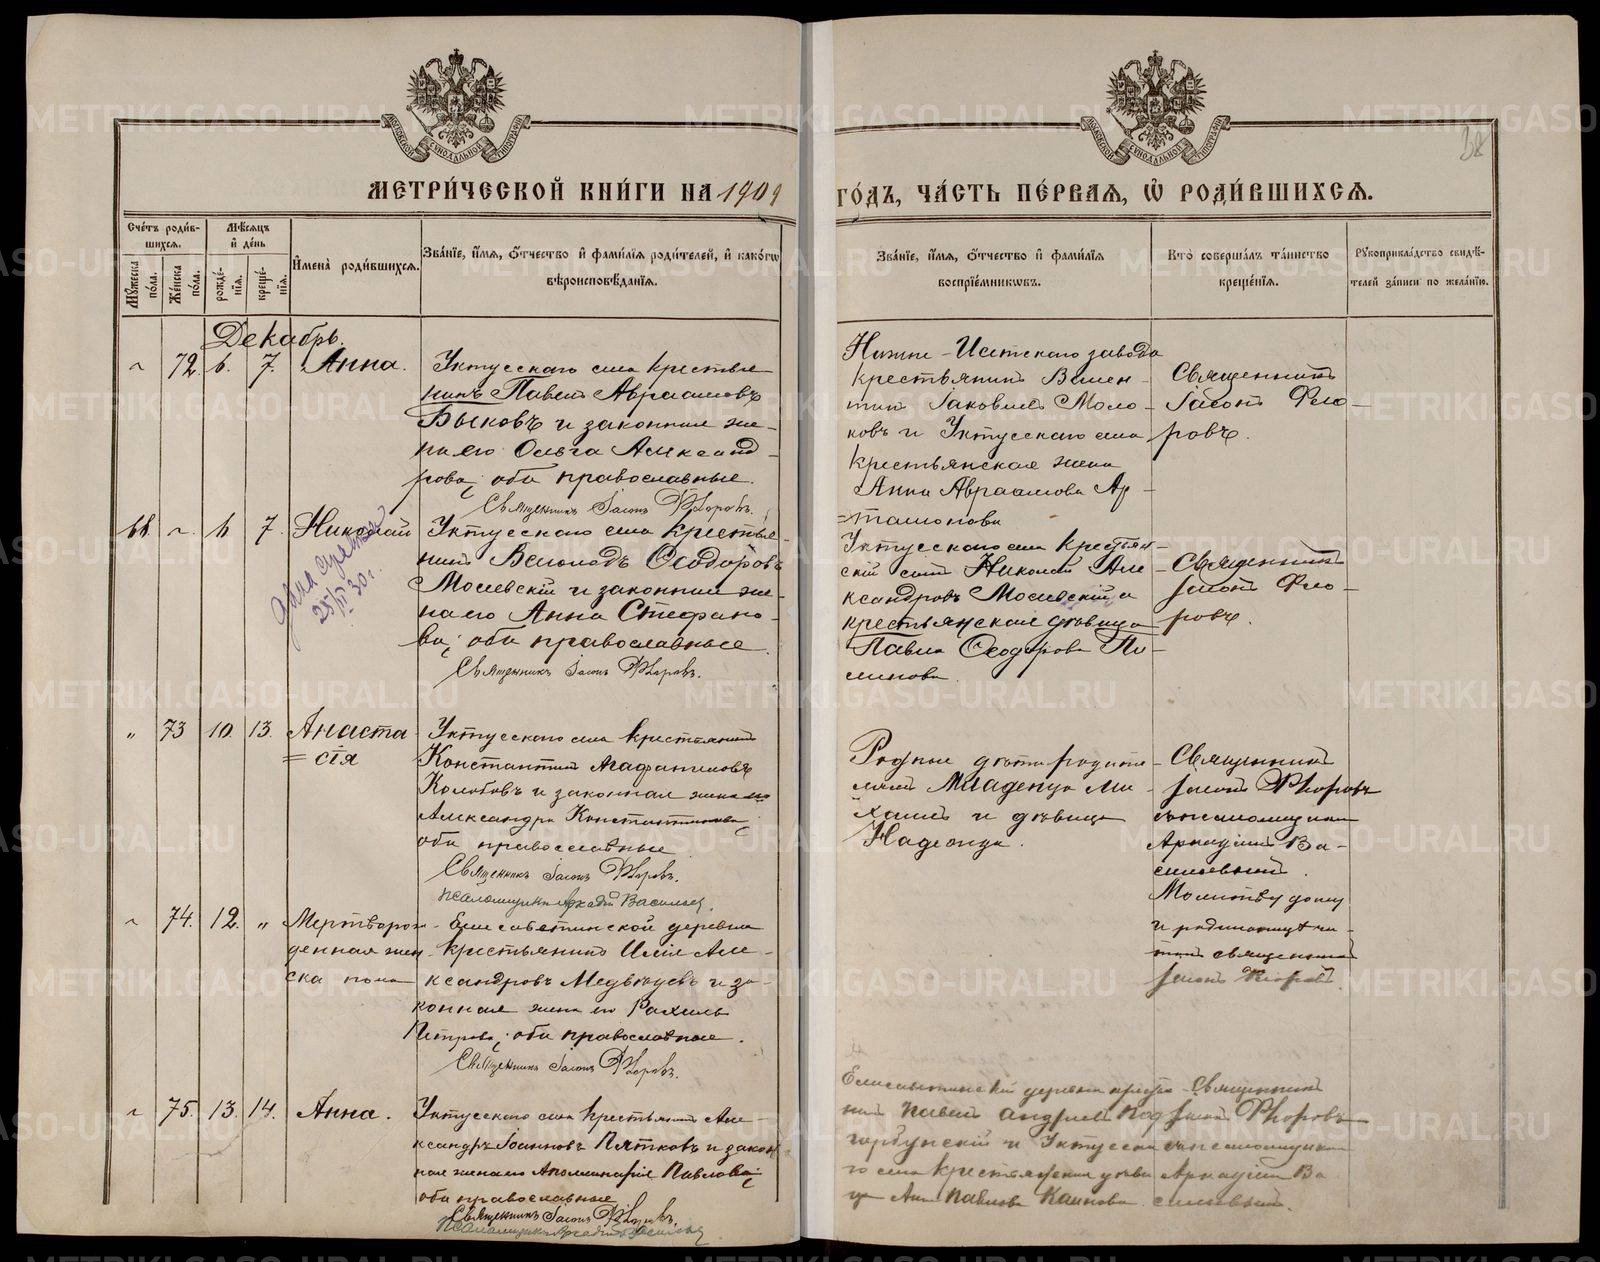 МЕТРИ́ЧЕСКОЙ КНИ́ГИ НА 1909
ГО́ДЪ, ЧА́СТЬ ПЕ́РВАѦ, Ѡ҆ РОДИ́ВШИХСѦ.
32
Сче́тъ роди́в-
шихсѧ.
Мѣ́сѧцъ
и҆ де́нь
Мꙋ́жеска по́ла.
Же́нска по́ла.
рожде́-
нїѧ.
креще́-
нїѧ.
И҆мена̀ роди́вшихсѧ.
Зва́нїе, и҆́мѧ, ѻ҆́тчество и҆ фами́лїѧ роди́телей, и҆ како́гѡ
вѣроисповѣ́данїѧ.
Зва́нїе, и҆́мѧ, ѻ҆́тчество и҆ фами́лїѧ
воспрїе́мникѡвъ.
Кто̀ соверша́лъ та́инство
креще́нїѧ.
Рꙋкоприкла́дство свидѣ́-
телей за́писи по жела́нїю.
Декабрь.
" 72. 6. 7. Анна.
Уктусскаго села крестья
нинъ Павелъ Авраамовъ
Быковъ и законная же-
на его Ольга Александ-
рова; оба православные.
Священникъ Іасонъ Флоровъ.
Нижне-Исетскаго завода
крестьянинъ Вален-
тинъ Іаковлевъ Моло-
ковъ и Уктусскаго села
крестьянская жена
Анна Авраамова Ар-
=тамонова
Священникъ
Іасонъ Фло-
ровъ.
66. " 6 7. Николай
25/IV 30 г.
Уктусскаго села крестья-
нинъ Всеволодъ Ѳеодоровъ
Мосевскій и законная же-
на его Анна Стефано-
ва; оба православные.
Священникъ Іасонъ Флоровъ.
Уктусскаго села крестьян-
скій сынъ Николай Але-
ксандровъ Мосевскій и
крестьянская дѣвица
Павла Ѳеодорова
Священникъ
Іасонъ Фло-
ровъ.
" 73 10. 13. Анаста
=сія
Уктусскаго села крестьянинъ
Константинъ Агафангеловъ
Колобовъ и законная жена его
Александра Константинова;
оба православные
Священникъ Іасонъ Флоровъ.
Псаломщикъ Аркадій Васильевъ.
Родные дѣти родите
лей младенца Ми
хаилъ и дѣвица
Надежда.
Священникъ
Іасонъ Флоровъ
съ псаломщикомъ
Аркадіемъ Ва-
сильевымъ.
" 74. 12. " Мертворож
денная жен
ска пола
Елисаветинской деревни
крестьянинъ Илія Але-
ксандровъ Медвѣдевъ и за-
конная жена его Рахиль
Петрова; оба православные.
Священникъ Іасонъ Флоровъ.
Молитву дому
и родильницѣ чи-
талъ священникъ
Іасонъ Флоровъ.
" 75. 13. 14. Анна.
Уктусскаго села крестьянинъ Але
ксандръ Іоанновъ Пятковъ и закон
ная жена его Аполлинарія Павлова;
оба православные
Священникъ Іасонъ Флоровъ.
Псаломщикъ Аркадій Васильевъ.
Елисаветинской деревни крестья
нинъ Павелъ Андреевъ Под
горбунскій и Уктусска
го села крестьянская дѣви
ца Анна Павлова
Священникъ
Іасонъ Флоровъ
съ псаломщикомъ
Аркадіемъ Ва
сильевымъ.
METRIKI.GASO-URAL.RU